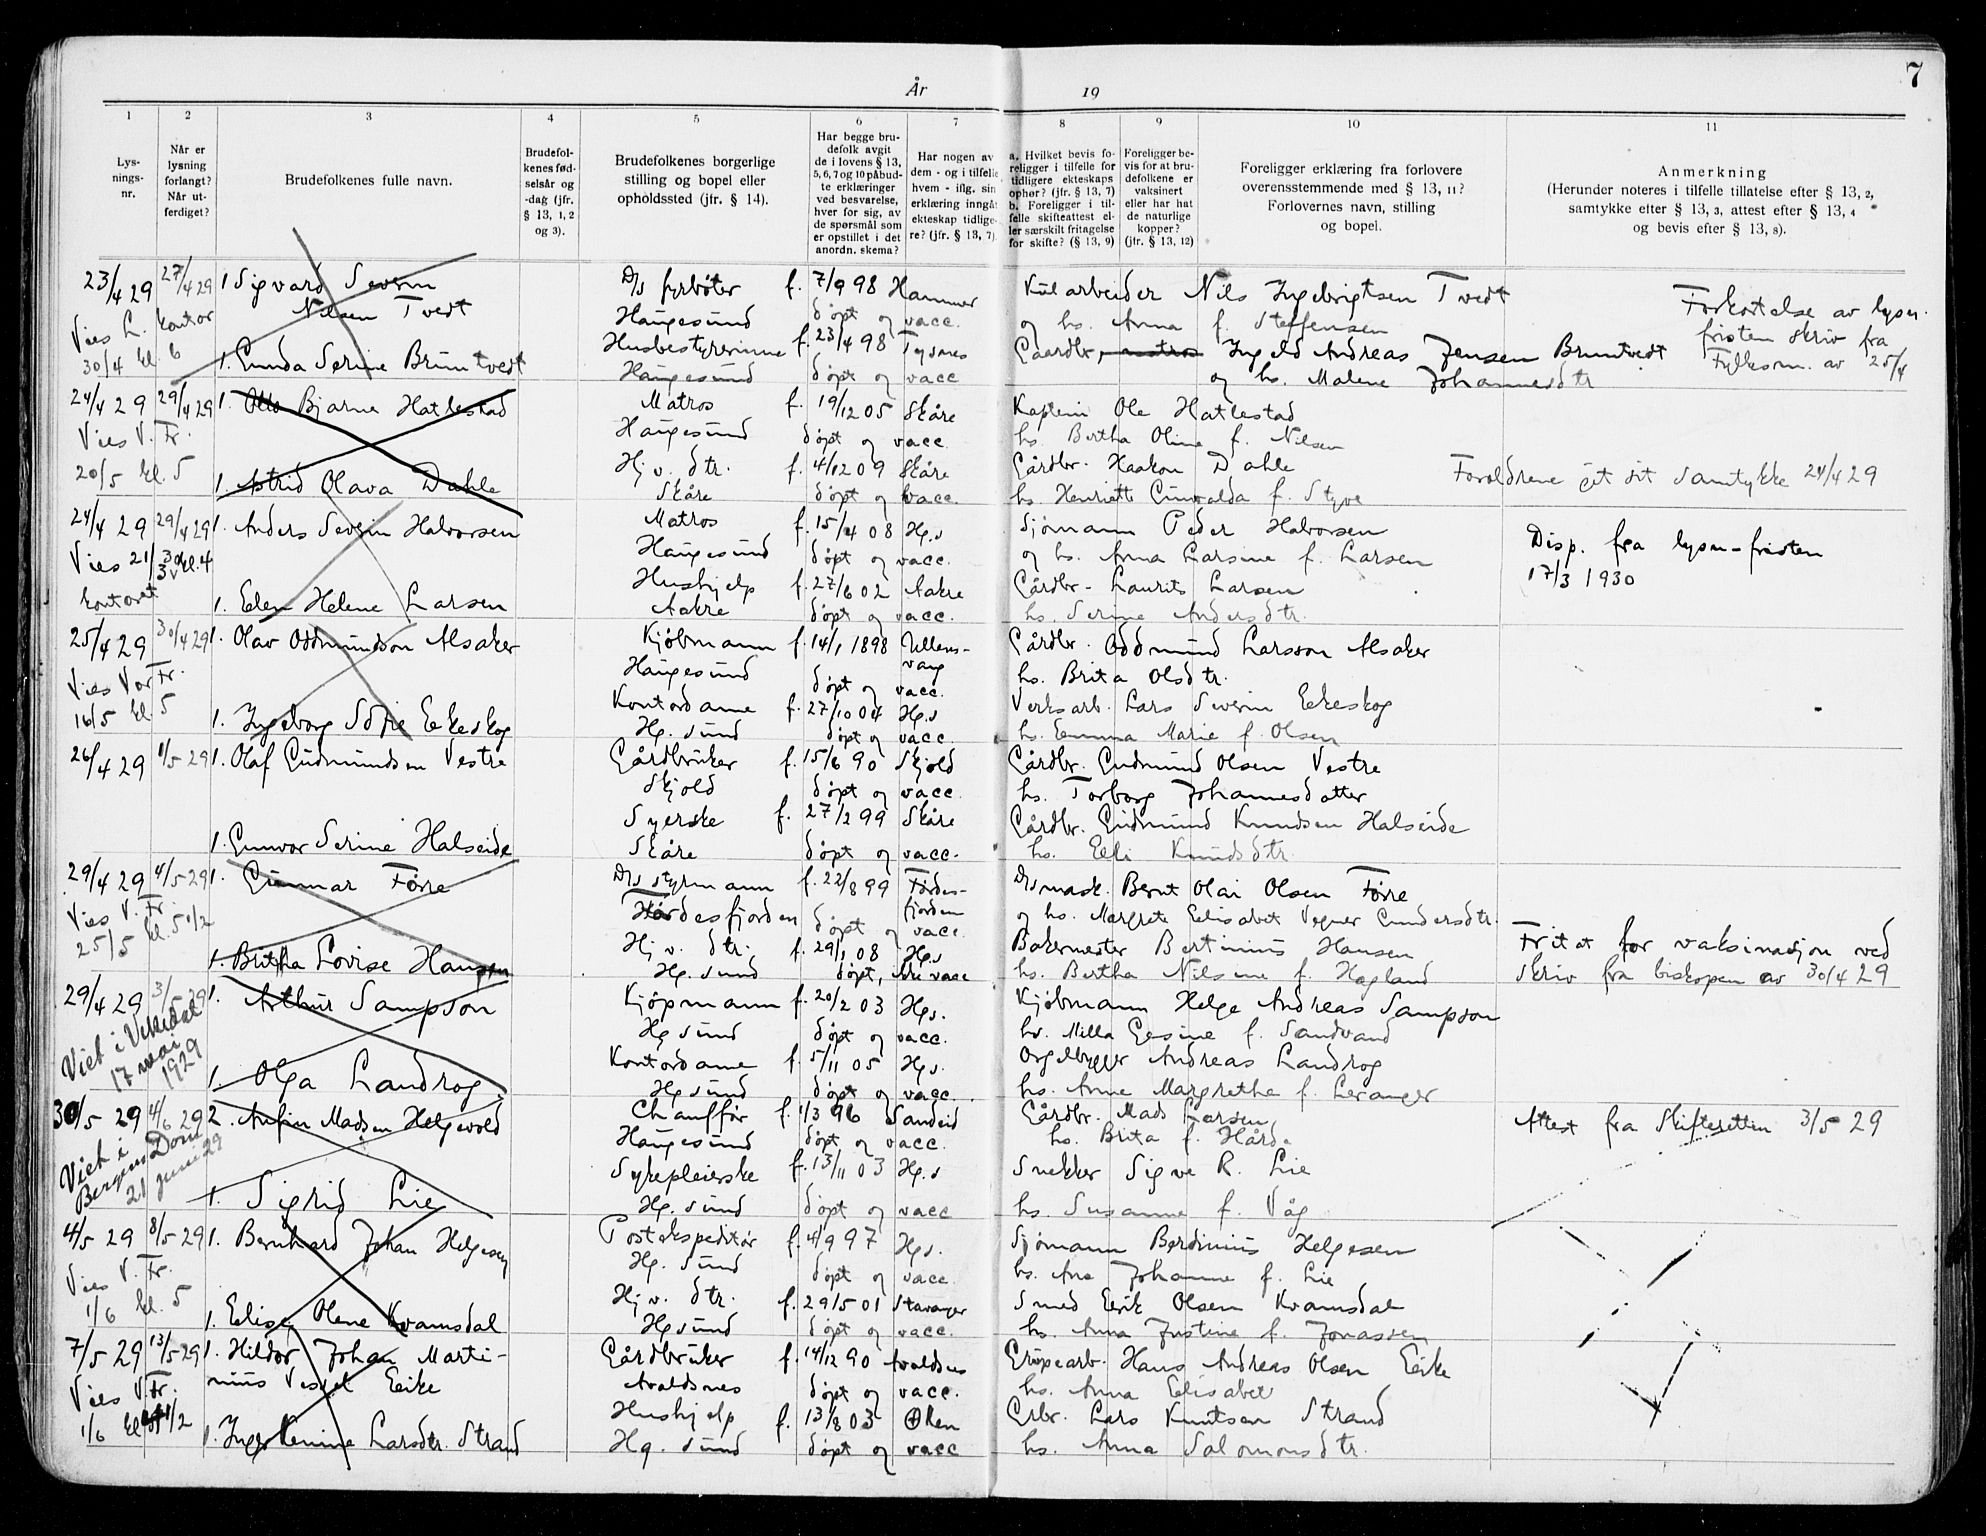 7
År 19
1 2 3 4 5 6 7 8 9 10 11
Lys-
nings-
nr.
Når er
lysning
forlangt?
Når ut-
ferdiget?
Brudefolkenes fulle navn.
Brudefol-
kenes fød-
selsår og
-dag (jfr.
§ 13, 1, 2
og 3).
Brudefolkenes borgerlige
stilling og bopel eller
opholdssted (jfr. § 14).
Har begge bru-
defolk avgit
de i lovens § 13,
5, 6, 7 og 10 påbud-
te erklæringer
ved besvarelse,
hver for sig, av
de spørsmål som
er opstillet i det
anordn. skema?
Har nogen av
dem - og i tilfelle
hvem - iflg. sin
erklæring inngåt
ekteskap tidlige-
re? (jfr. § 13, 7)
a. Hvilket bevis fo-
religger i tilfelle for
tidligere ekteskaps
ophør? (jfr. § 13, 7)
b. Foreligger i til-
felle skifteattest el-
ler særskilt fritagelse
for skifte? (§ 13, 9)
Foreligger be-
vis for at bru-
defolkene er
vaksinert
eller har hat
de naturlige
kopper?
(jfr. § 13, 12)
Foreligger erklæring fra forlovere
overensstemmende med § 13, 11?
Forlovernes navn, stilling
og bopel.
Anmerkning
(Herunder noteres i tilfelle tillatelse efter § 13, 2,
samtykke efter § 13, 3, attest efter § 13, 4
og bevis efter § 13, 8).
23/4 29 27/4 29 1 Sigvard Severin D/s fyrbøter f. 7/9 98 Hammer Kularbeider Nils Ingebrigtsen Tvedt
Nilsen Tvedt Haugesund døpt og vacc. og hs. Anna f. Steffensen Forkortelse av lysn.
Vies L. kontor
30/4 kl. 6 1. Gunda Serine Bruntvedt Husbestyrerinne f. 23/4 98 Tysnes Gaardbr. Andreas Jensen Bruntvedt fristen skriv fra
Haugesund døpt og vacc og hs. Malene Johannesdtr Fylkesm. av 25/4
24/4 29 29/4 29 1. Otto Bjarne Hatlestad Matros f. 19/12 05 Skåre Kaptein Ole Hatlestad
Vies V. Fr. Haugesund døpt og vacc. hs. Bertha Oline f. Nilsen
20/5 kl. 5 Hj v. dtr. f. 4/12 09 Skåre Gårdbr. Haakon Dahle Foreldrene git sit samtykke 24/4 29
1. Astrid Olava Dahle Skåre døpt og vacc. hs. Henriette f. Styve
24/4 29 29/4 29 1. Anders Severin Halvorsen Matros f. 15/4 08 Hg.s Sjømann Peder Halvorsen Disp. fra lysn-fristen
Vies 21/3 30 kl. 4 Haugesund døpt og vacc. og hs. Anna Larsine f. Larsen 17/3 1930
kontoret Hushjelp f. 27/6 02 Aakre Gårdbr. Laurits Larsen
1. Elen Helene Larsen Aakre døpt og vacc. hs. Serine Andersdtr.
25/4 29 30/4 29 1. Olav Oddmundson Alsaker Kjøbmann f. 14/1 1898 Ullens- Gårdbr. Oddmund Larsson Alsaker
Vies Vor Fr. Haugesund døpt og vacc. vang hs. Brita Olsdtr.
16/5 kl. 5 Kontordame f. 27/10 04 Hg.s Verksarb. Lars Severin Eikeskog
1. Ingeborg Sofie Eikeskog Hg. sund døpt og vacc. hs. Emma Marie f. Olsen
26/4 29 1/5 29 1. Olaf Gudmundsen Vestre Gårdbruker f. 15/6 90 Skjold Gårdbr. Gudmund Olsen Vestre
Skjold døpt og vacc. hs. Torborg Johannesdatter
Syerske f. 27/2 99 Skåre Gårdbr. Gudmund Knudsen Halseide
1. Gunvor Serine Halseide Skåre døpt og vacc. hs. Elli Knudsdtr.
29/4 29 4/5 29 1. Gunnar Førre D/s styrmann f. 22/8 99 Førdes- D/s mask. Bernt Olai Olsen Førre
Vies V. Fr. Førdesfjorden døpt og vacc. fjorden og hs. Margrete Elisabet Gundersdtr.
25/5 kl. 5 1/2 Hj v. dtr. f. 29/1 08 Hg.s Bakermester Bertinius Hansen Fritat for vaksinasjon ved
1. Britha Lovise Hansen Hg. sund døpt, ikke vacc hs. Bertha Nilsine f. Hagland skriv fra biskopen av 30/4 29
29/4 29 3/5 29 1. Arthur Sampson Kjøpmann f. 20/2 03 Hg.s. Kjøbmann Helge Andreas Sampson
Viet i Vikedal Hg sund døpt og vacc. hs. Milla Gesine f. Sandvand
17 mai Kontordame f. 5/11 05 Hg.s. Orgelbygger Andreas Landrog
1929 1. Olga Landrog Hg sund døpt og vacc. hs. Anne Margrethe f. Leranger
30/5 29 4/6 29 2. Anfin Madsen Helgevold Chauffør f. 1/3 96 Sandeid Gårdbr. Mads Larsen Attest fra Skifteretten 3/5 29
Viet i Haugesund døpt og vacc. hs. Brita f. Hårda
Bergens Dom Sykepleierske f. 13/11 03 Hg.s Snekker Sigve R. Lie
21 juni 29 1. Sigrid Lie Hg. sund døpt og vacc hs. Susanne f. Våg
4/5 29 8/5 29 1. Bernhard Johan Helgesen Postekspeditør f. 4/9 97 Hg.s. Sjømann Berdinius Helgesen
Vies V. Fr. Hg. sund døpt og vacc. hs. Ane Johanne f. Lie
1/6 kl. 5 Hj v. dtr. f. 29/5 01 Stavanger Smed Eirik Olsen Kvamsdal
1. Elise Olene Kvamsdal Hg sund døpt og vacc. hs. Anna Justine f. Jonassen
7/5 29 13/5 29 1. Hildor Johan Marti- Gårdbruker f. 14/12 90 Avaldsnes Grubearb. Hans Andreas Olsen Eike
nius Eike Avaldsnes døpt og vacc. hs. Anna Elisabet
Vies V. Fr. Hushjelp f. 13/8 03 Ølen Grbr. Lars Knutsen Strand
1/6 kl 1/2 1. Inger Larsdtr. Strand Hg. sund døpt og vacc hs. Anna Salomonsdtr.